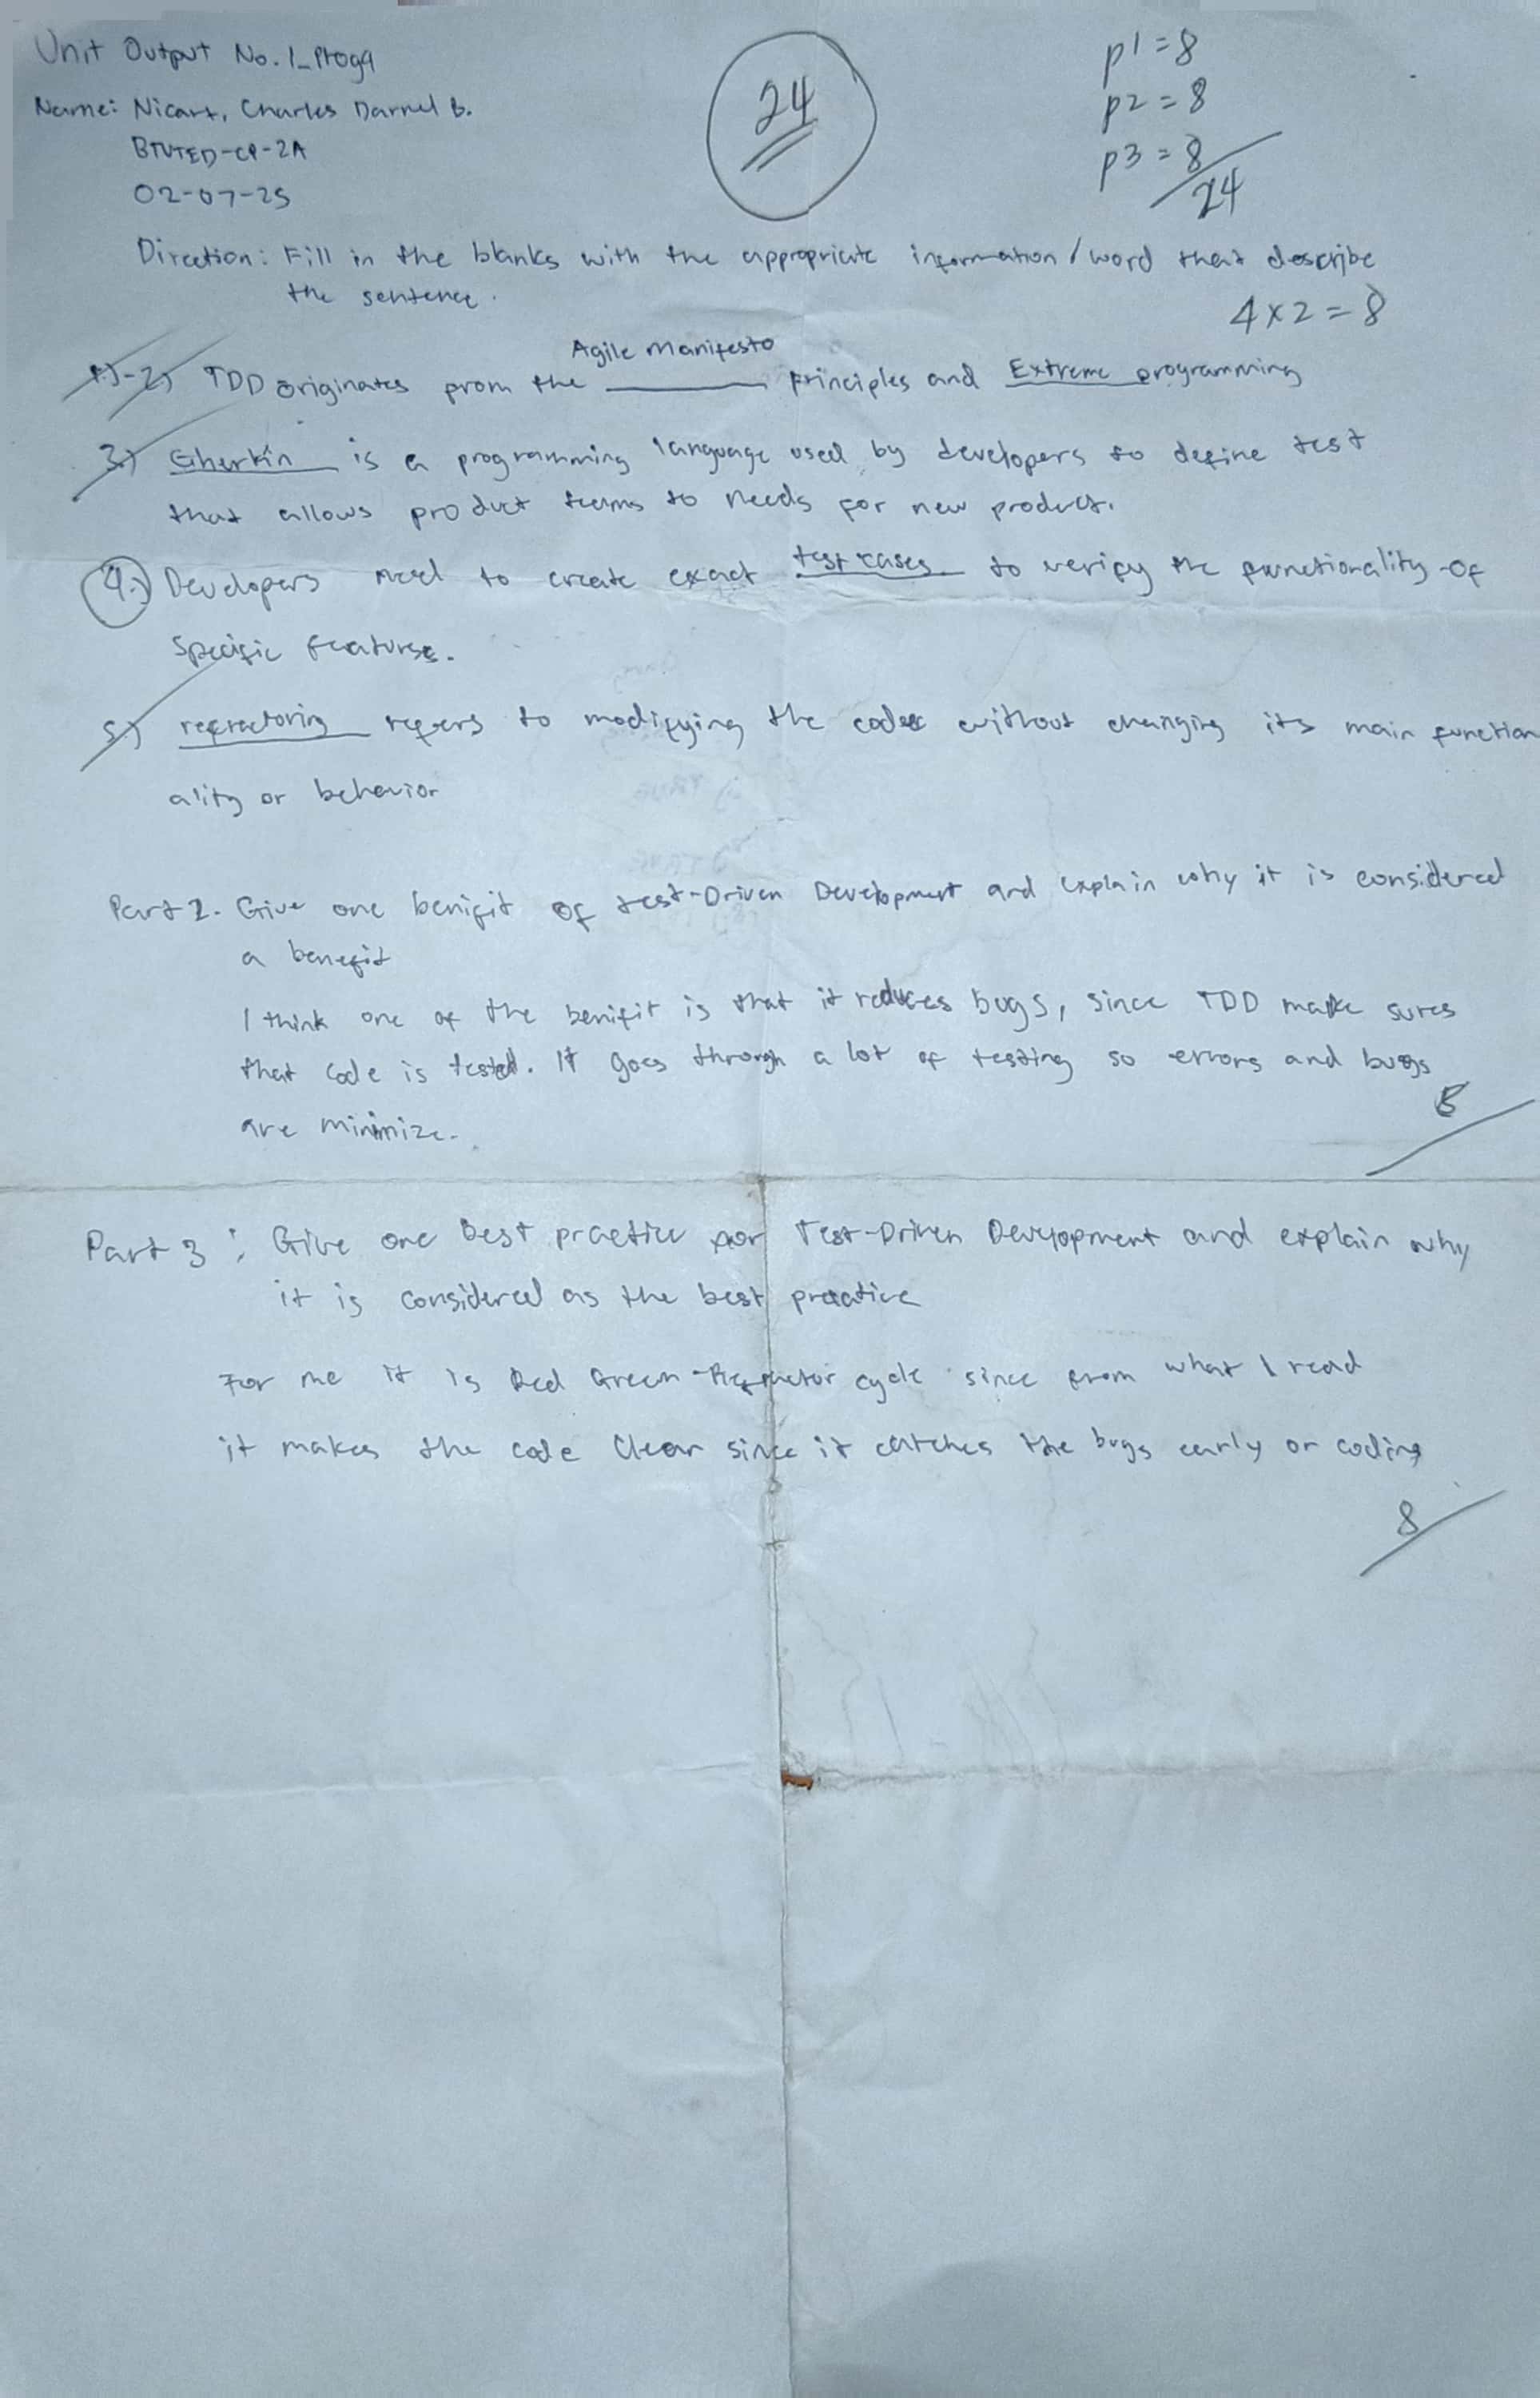 Unit Output No. 1_Prog9
Name: Nicart, Charles Darnel B.
BTVTED-CP-2A
02-07-25
24
p1 = 8
p2 = 8
p3 = 8
24
Direction: Fill in the blanks with the appropriate information / word that describe
the sentence.
4 x 2 = 8
Agile Manifesto
1)-2) TDD originates from the ________ principles and Extreme programming
3.) Gherkin is a programming language used by developers to define test
that allows product teams to needs for new product.
4.) Developers need to create exact test cases to verify the functionality of
specific features.
5) refractoring refers to modifying the codes without changing its main function
ality or behavior
Part 2. Give one benifit of test-Driven Development and explain why it is considered
a benefit
I think one of the benifit is that it reduces bugs, since TDD make sures
that code is tested. It goes through a lot of testing so errors and bugs
are minimize.
8
Part 3 : Give one best practice for Test-Driven Development and explain why
it is considered as the best practice
For me it is Red Green-Refractor cycle since from what I read
it makes the code clear since it catches the bugs early or coding
8